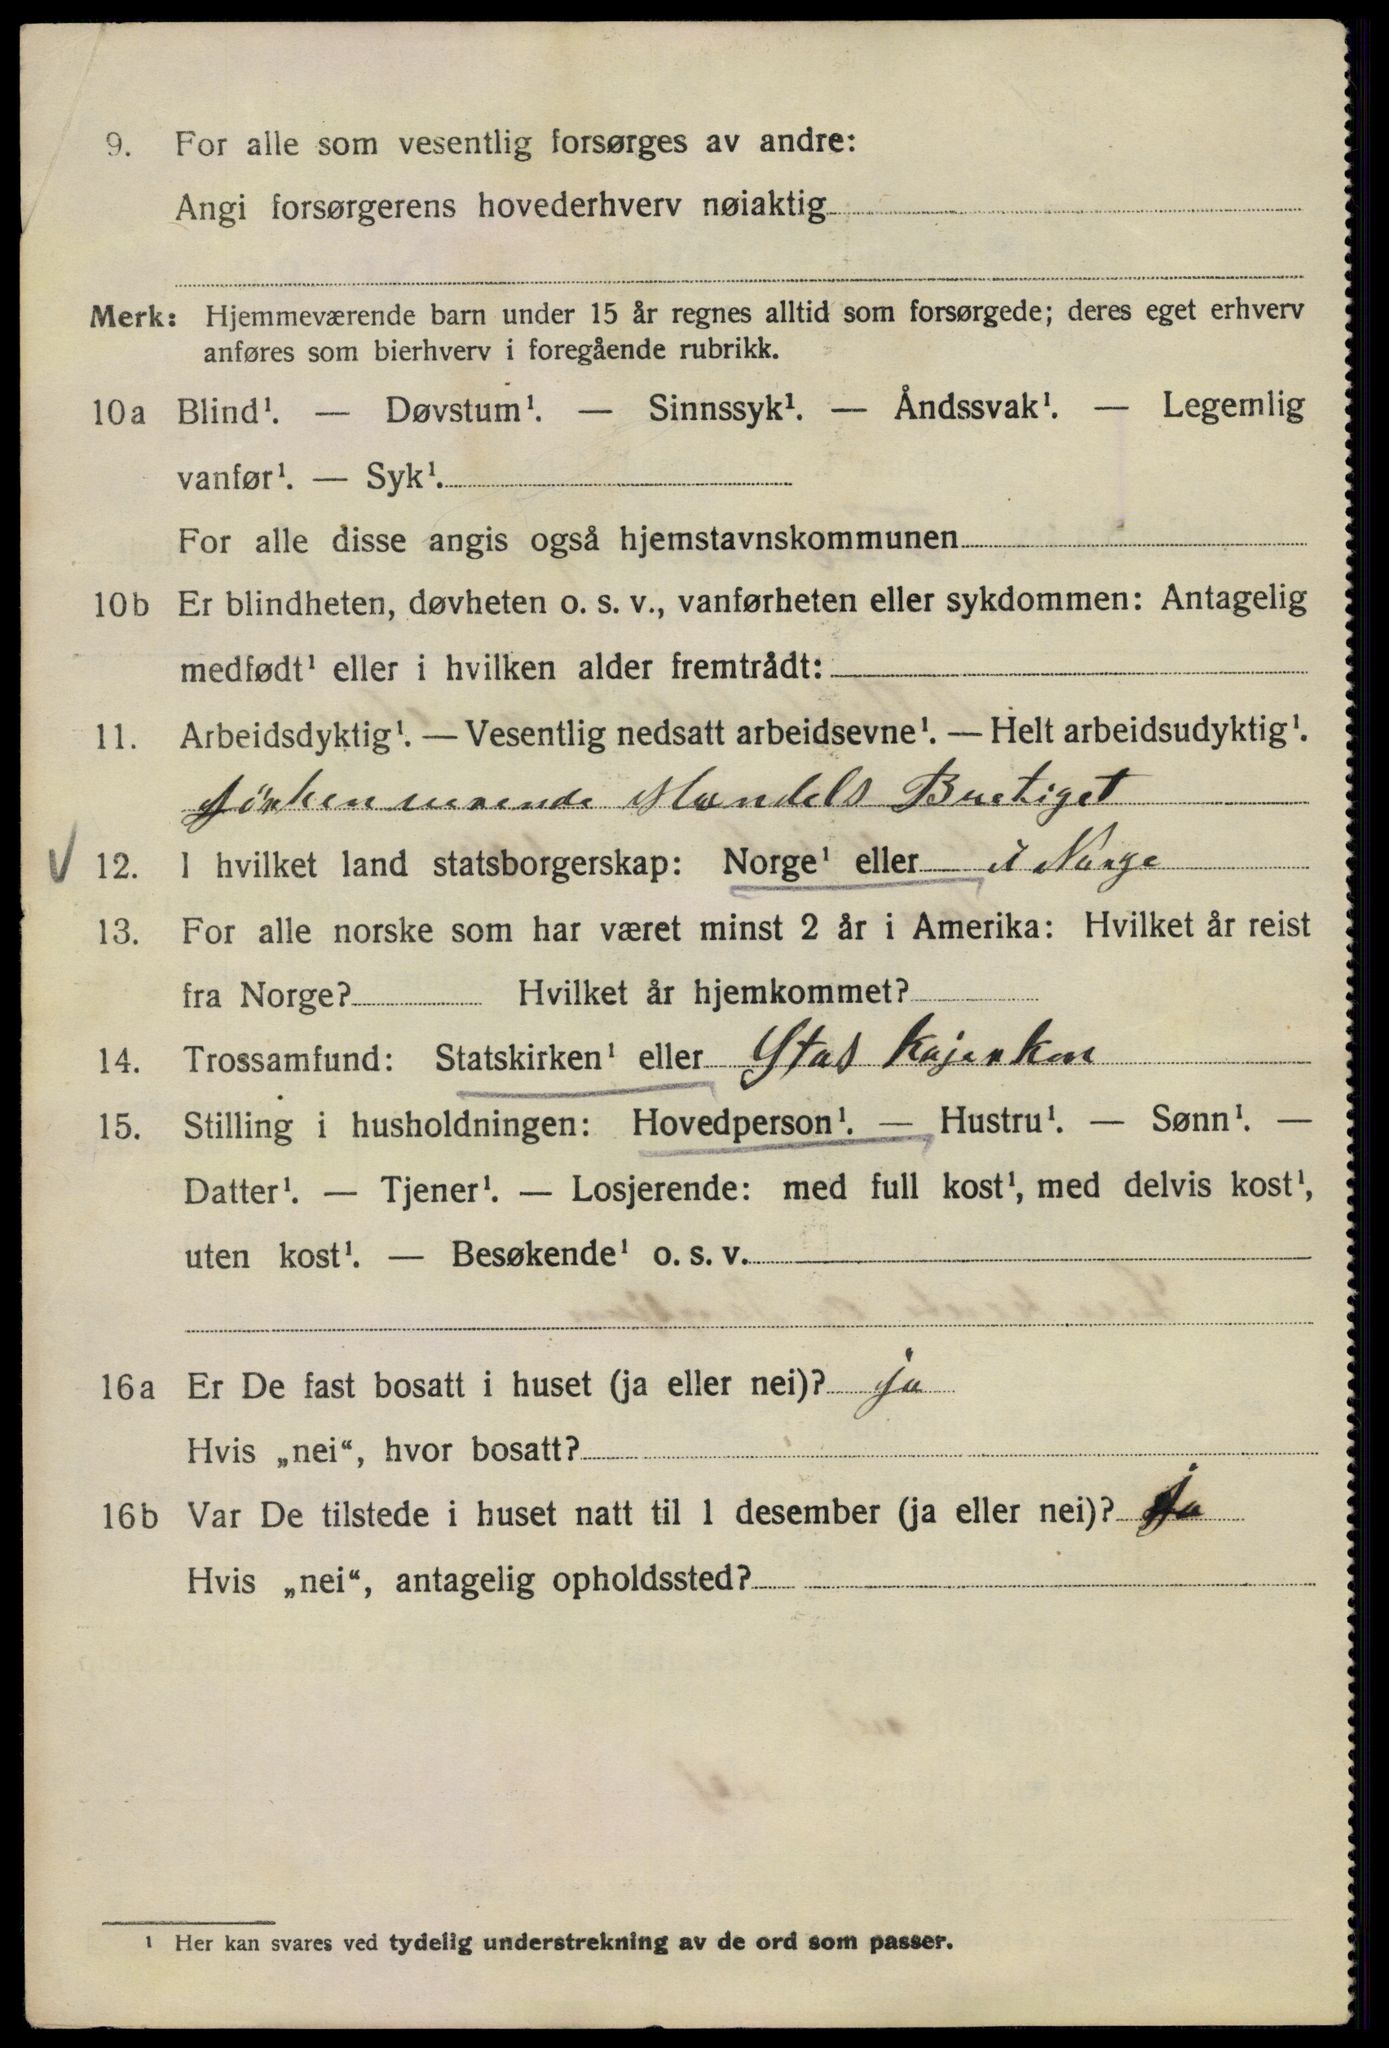 9. For alle som vesentlig forsørges av andre:
Angi forsørgerens hovederhverv nøiaktig
Merk: Hjemmeværende barn under 15 år regnes alltid som forsørgede; deres eget erhverv
anføres som bierhverv i foregående rubrikk.
10a Blind¹. — Døvstum¹. — Sinnssyk¹. — Åndssvak¹. — Legemlig
vanfør¹. — Syk¹.
For alle disse angis også hjemstavnskommunen
10b Er blindheten, døvheten o. s. v., vanførheten eller sykdommen: Antagelig
medfødt¹ eller i hvilken alder fremtrådt:
11. Arbeidsdyktig¹. — Vesentlig nedsatt arbeidsevne¹. — Helt arbeidsudyktig¹.
Handels
12. I hvilket land statsborgerskap: Norge¹ eller Norge
13. For alle norske som har været minst 2 år i Amerika: Hvilket år reist
fra Norge? Hvilket år hjemkommet?
14. Trossamfund: Statskirken¹ eller Stas
15. Stilling i husholdningen: Hovedperson¹. — Hustru¹. — Sønn¹. —
Datter¹. — Tjener¹. — Losjerende: med full kost¹, med delvis kost¹,
uten kost¹. — Besøkende¹ o. s. v.
16a Er De fast bosatt i huset (ja eller nei)? ja
Hvis „nei“, hvor bosatt?
16b Var De tilstede i huset natt til 1 desember (ja eller nei)? ja
Hvis „nei“, antagelig opholdssted?
¹ Her kan svares ved tydelig understrekning av de ord som passer.